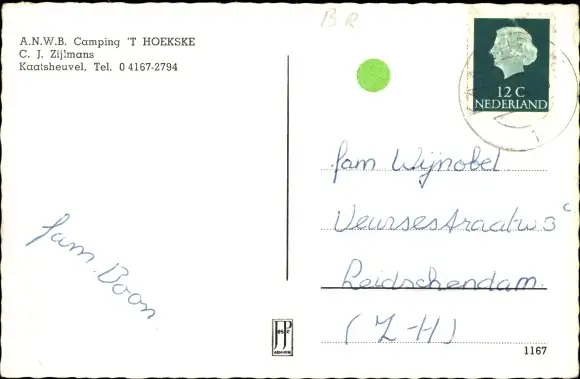 BR
A.N.W.B. Camping 'T HOEKSKE
C. J. Zijlmans
Kaatsheuvel, Tel. 0 4167-2794
12 C
NEDERLAND
fam Wijnobel
Veursestraatw 3 c
Leidschendam.
(Z-H)
fam. Boon
JosPe
ARNHEM
1167